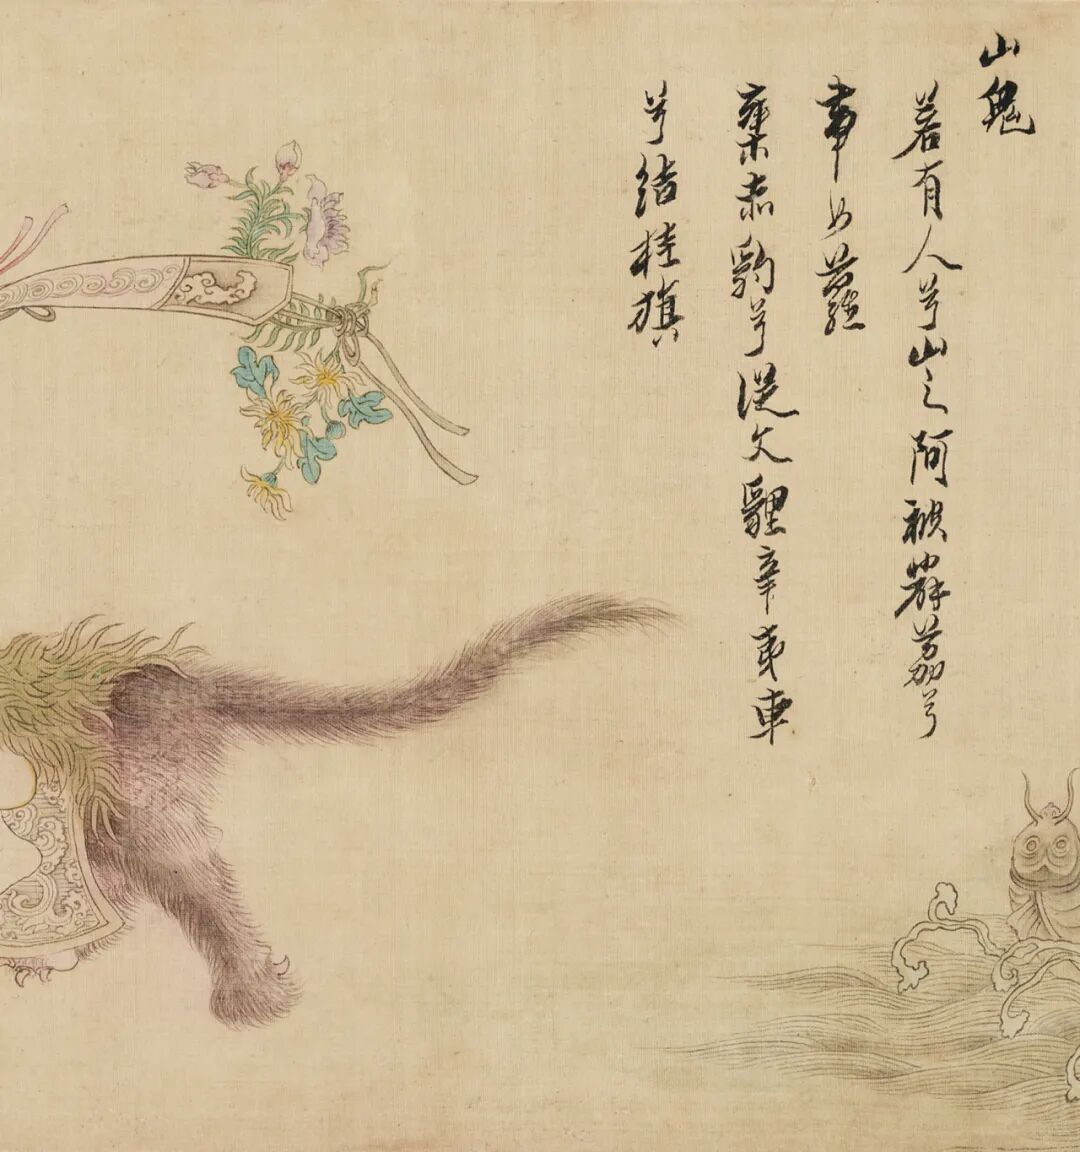 山鬼
若有人兮山之阿被薜荔兮
帶女蘿
乘赤豹兮從文貍辛夷車
兮結桂旗